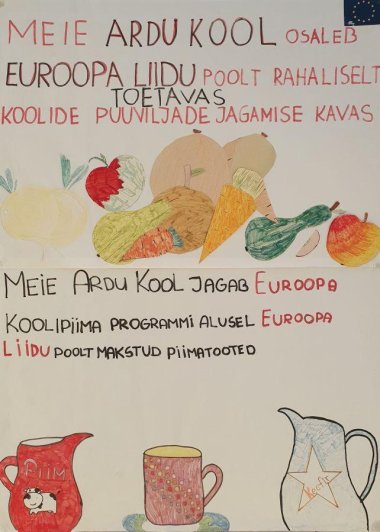 MEIE ARDU KOOL OSALEB
EUROOPA LIIDU POOLT RAHALISELT
TOETAVAS
KOOLIDE PUUVILJADE JAGAMISE KAVAS
MEIE ARDU KOOL JAGAB EUROOPA
KOOLIPIIMA PROGRAMMI ALUSEL EUROOPA
LIIDU POOLT MAKSTUD PIIMATOOTED
PIIM